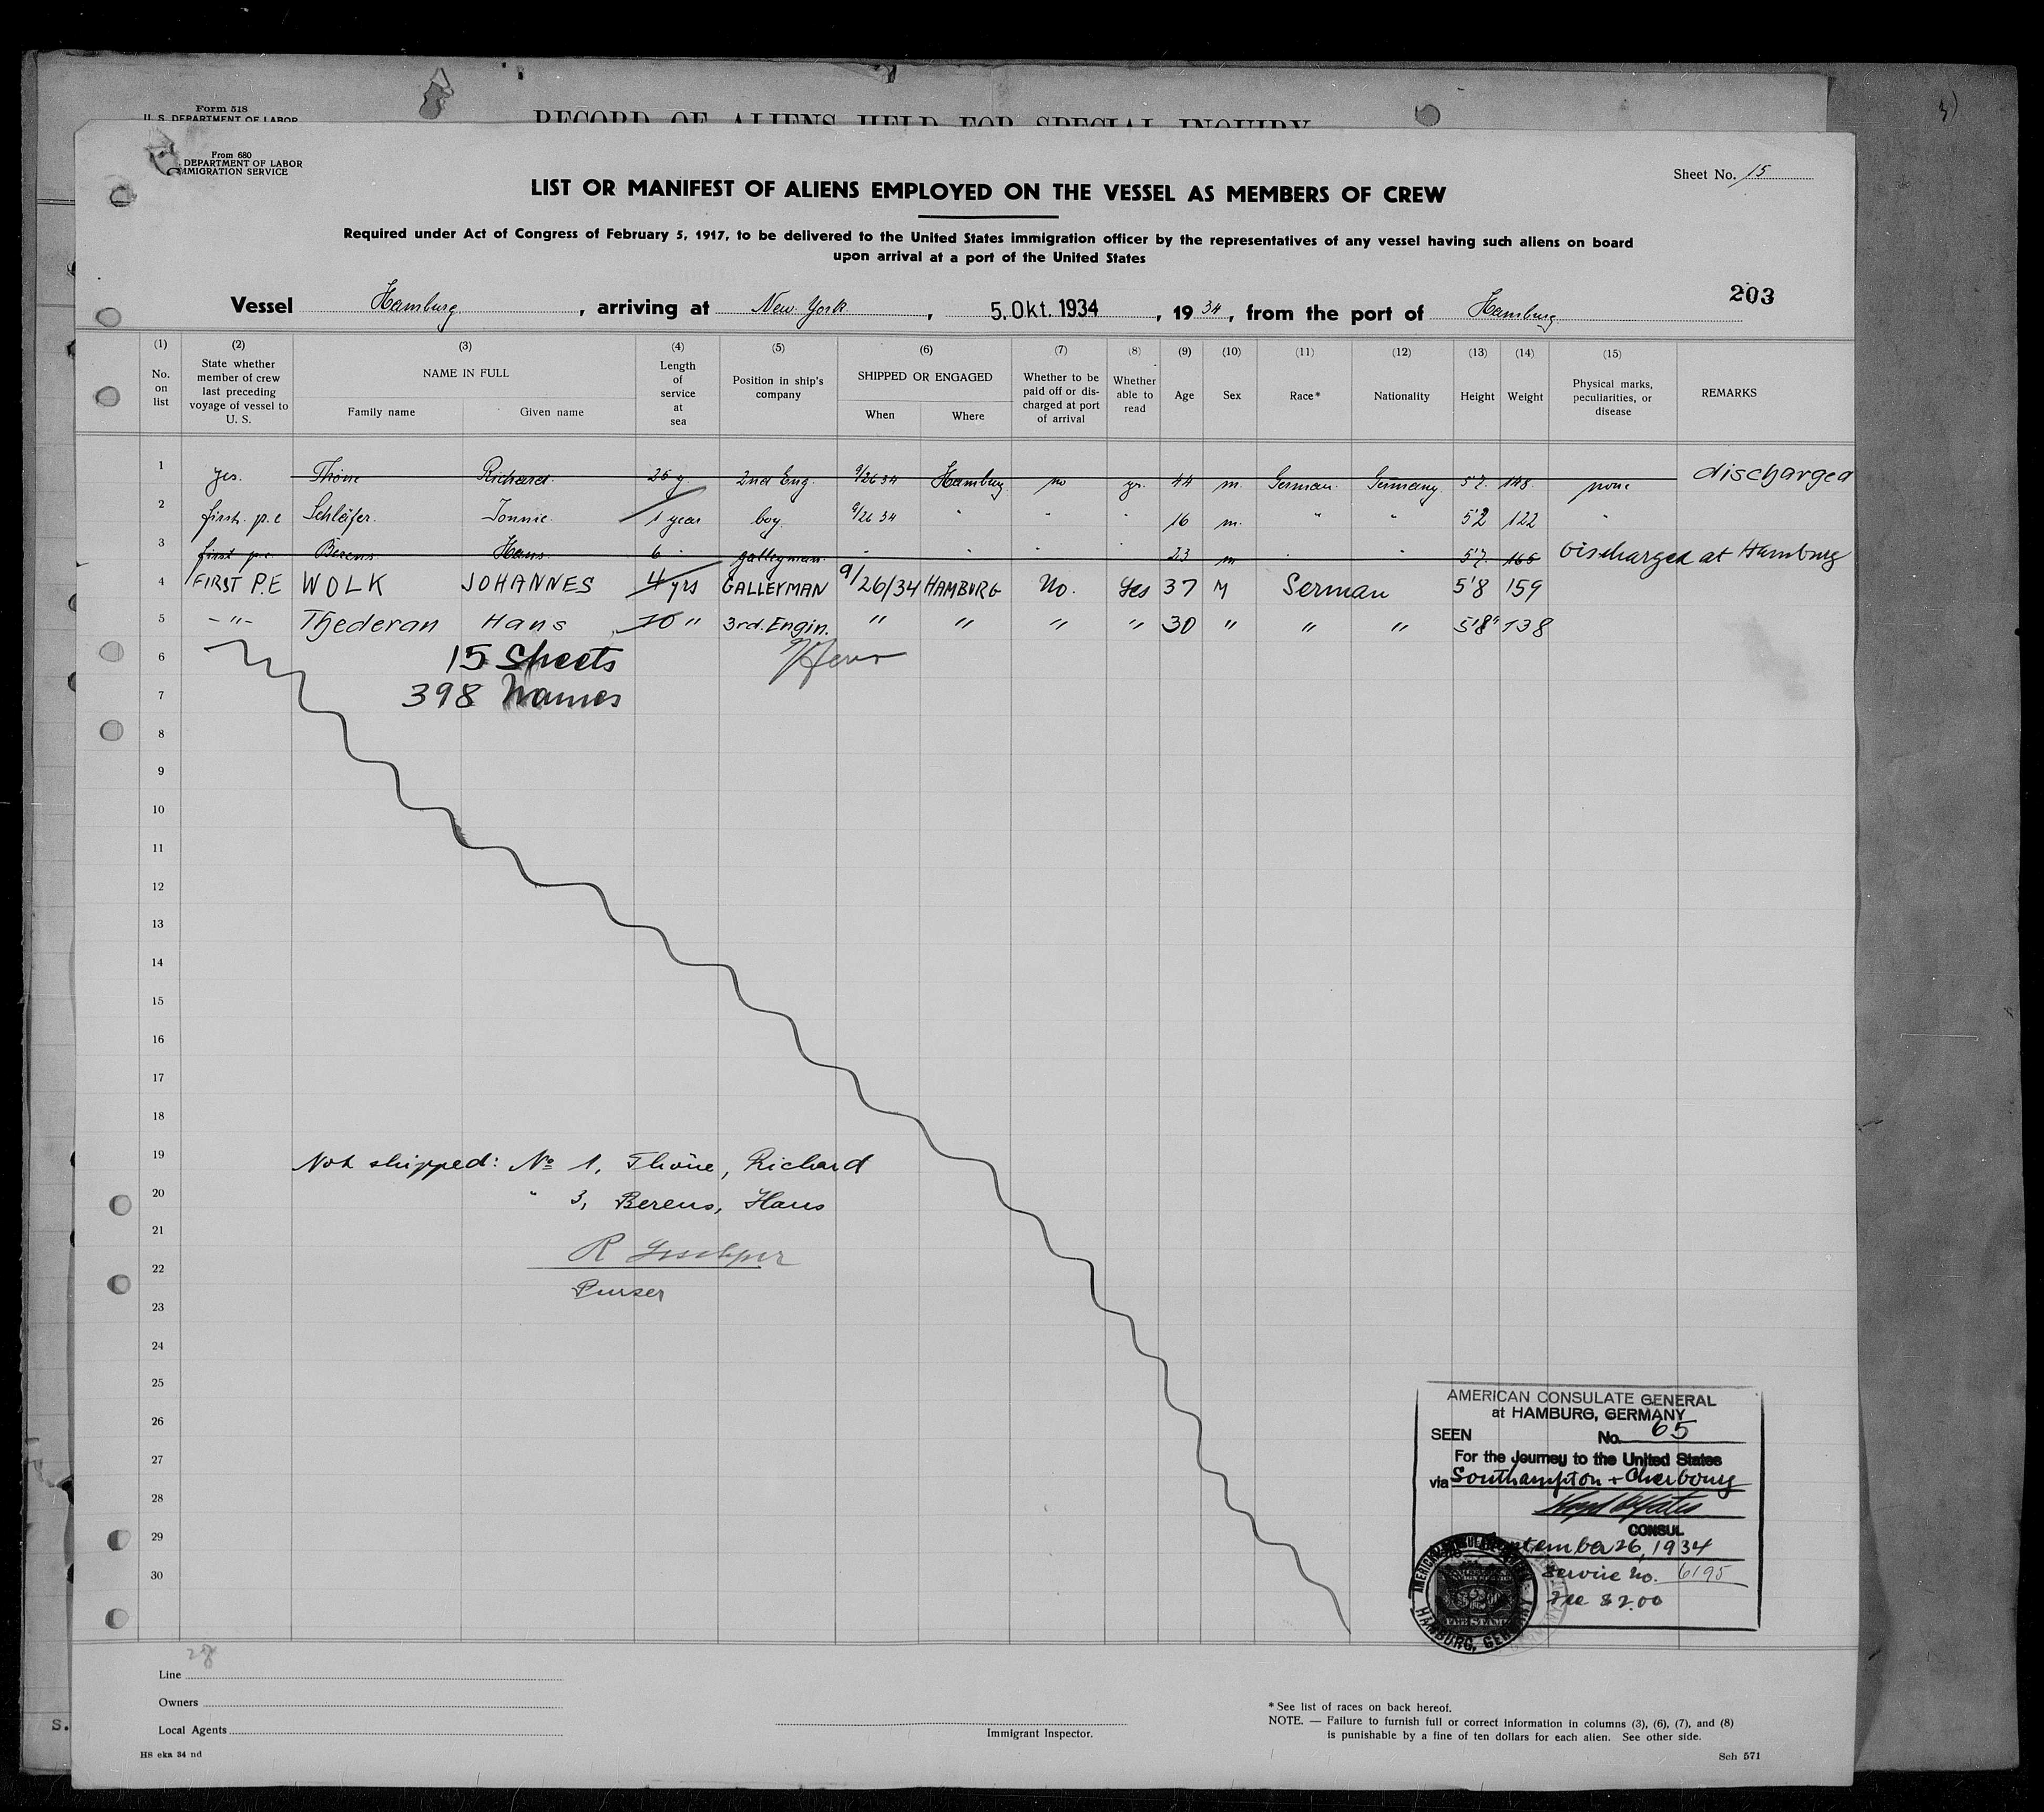 Form 518
U. S. DEPARTMENT OF LABOR
RECORD OF ALIENS HELD FOR SPECIAL INQUIRY
3)
From 680
DEPARTMENT OF LABOR
IMMIGRATION SERVICE
Sheet No. 15
LIST OR MANIFEST OF ALIENS EMPLOYED ON THE VESSEL AS MEMBERS OF CREW
Required under Act of Congress of February 5, 1917, to be delivered to the United States immigration officer by the representatives of any vessel having such aliens on board
upon arrival at a port of the United States
203
Vessel Hamburg, arriving at New York, 5. Okt. 1934, 1934, from the port of Hamburg
(1) (2) (3) (4) (5) (6) (7) (8) (9) (10) (11) (12) (13) (14) (15)
No. on list
State whether member of crew last preceding voyage of vessel to U. S.
NAME IN FULL
Family name Given name
Length of service at sea
Position in ship's company
SHIPPED OR ENGAGED
When Where
Whether to be paid off or discharged at port of arrival
Whether able to read
Age
Sex
Race*
Nationality
Height
Weight
Physical marks, peculiarities, or disease
REMARKS
1 yes. Thöne Richard 25 y. 2nd Eng. 9/26 34 Hamburg no ys. 44 m. German Germany 5'7. 148. none discharged
2 first. p.e Schläfer. Tonnie. 1 year boy. 9/26 34 " " " 16 m. " " 5'2 122 "
3 first p.e. Berens Hans 6 " galleyman. " " " " 23 m " " 5'7. 165 Discharged at Hamburg
4 FIRST P.E WOLK JOHANNES 4 yrs GALLEYMAN 9/26/34 HAMBURG No. Yes 37 M German 5'8 159
5 -"- Thederan Hans 10 " 3rd. Engin. " " " " 30 " " " 5'8" 138
6 15 Sheets
7 398 Names
8
9
10
11
12
13
14
15
16
17
18
19 Not shipped: No 1, Thöne, Richard
20 " 3, Berens, Hans
21
22
Purser
23
24
25
26
27
28
29
30
AMERICAN CONSULATE GENERAL
at HAMBURG, GERMANY
SEEN No. 65
For the Journey to the United States
via Southampton + Cherbourg
CONSUL
September 26, 1934
Service No. 6195
Fee $2.00
AMERICAN CONSULATE GENERAL
HAMBURG, GERMANY
28
Line
Owners
Local Agents
Immigrant Inspector.
* See list of races on back hereof.
NOTE. — Failure to furnish full or correct information in columns (3), (6), (7), and (8)
is punishable by a fine of ten dollars for each alien. See other side.
HS eka 34 nd
Sch 571
S.